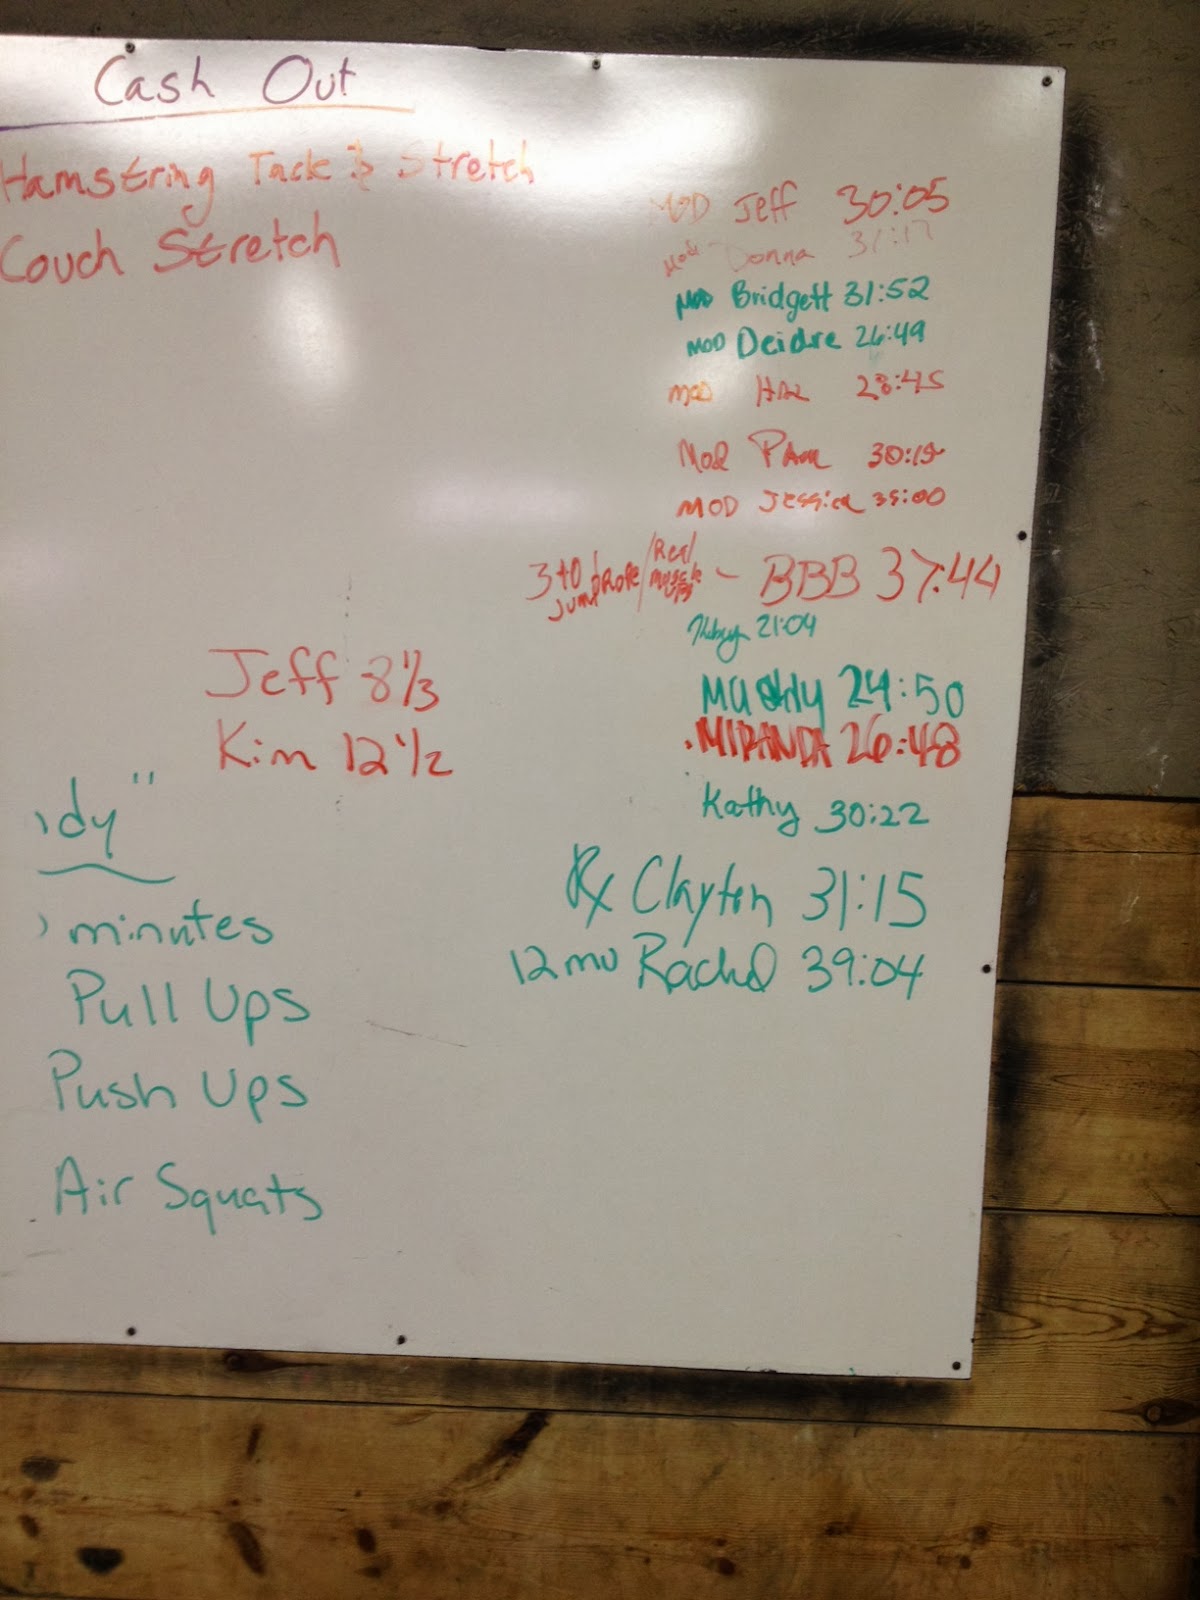 Cash Out
Hamstring Tack & Stretch
Couch Stretch
MOD Jeff 30:05
Mod Donna 31:17
MOD Bridgett 31:52
MOD Deidre 26:49
MOD 28:45
Mod PAm
MOD Jessica 35:00
3 to 1 Jump Rope / Real Muscle Ups - BBB 37:44
21:04
24:50
MIRANDA 26:48
Kathy 30:22
Rx Clayton 31:15
12 mu Rachel 39:04
Jeff 8 1/3
Kim 12 1/2
dy"
minutes
Pull Ups
Push Ups
Air Squats